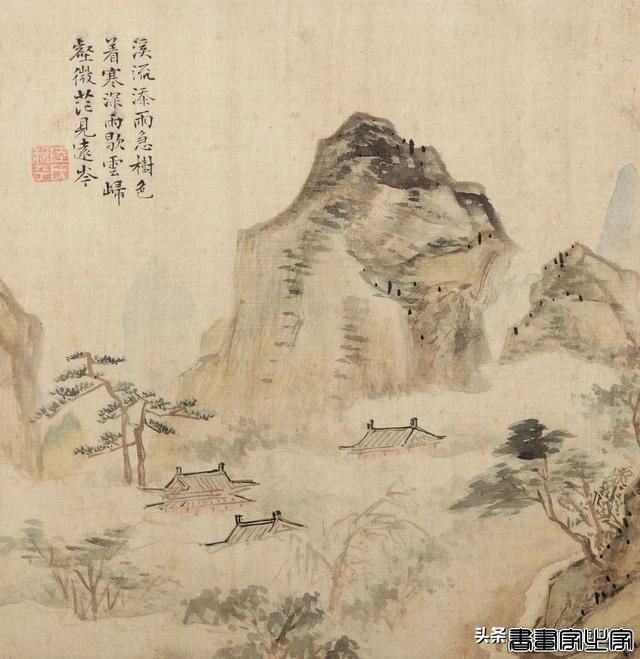 溪流添雨急樹色
着寒深雨歇雲歸
壑微茫見遠岑
头条 書畫家之家